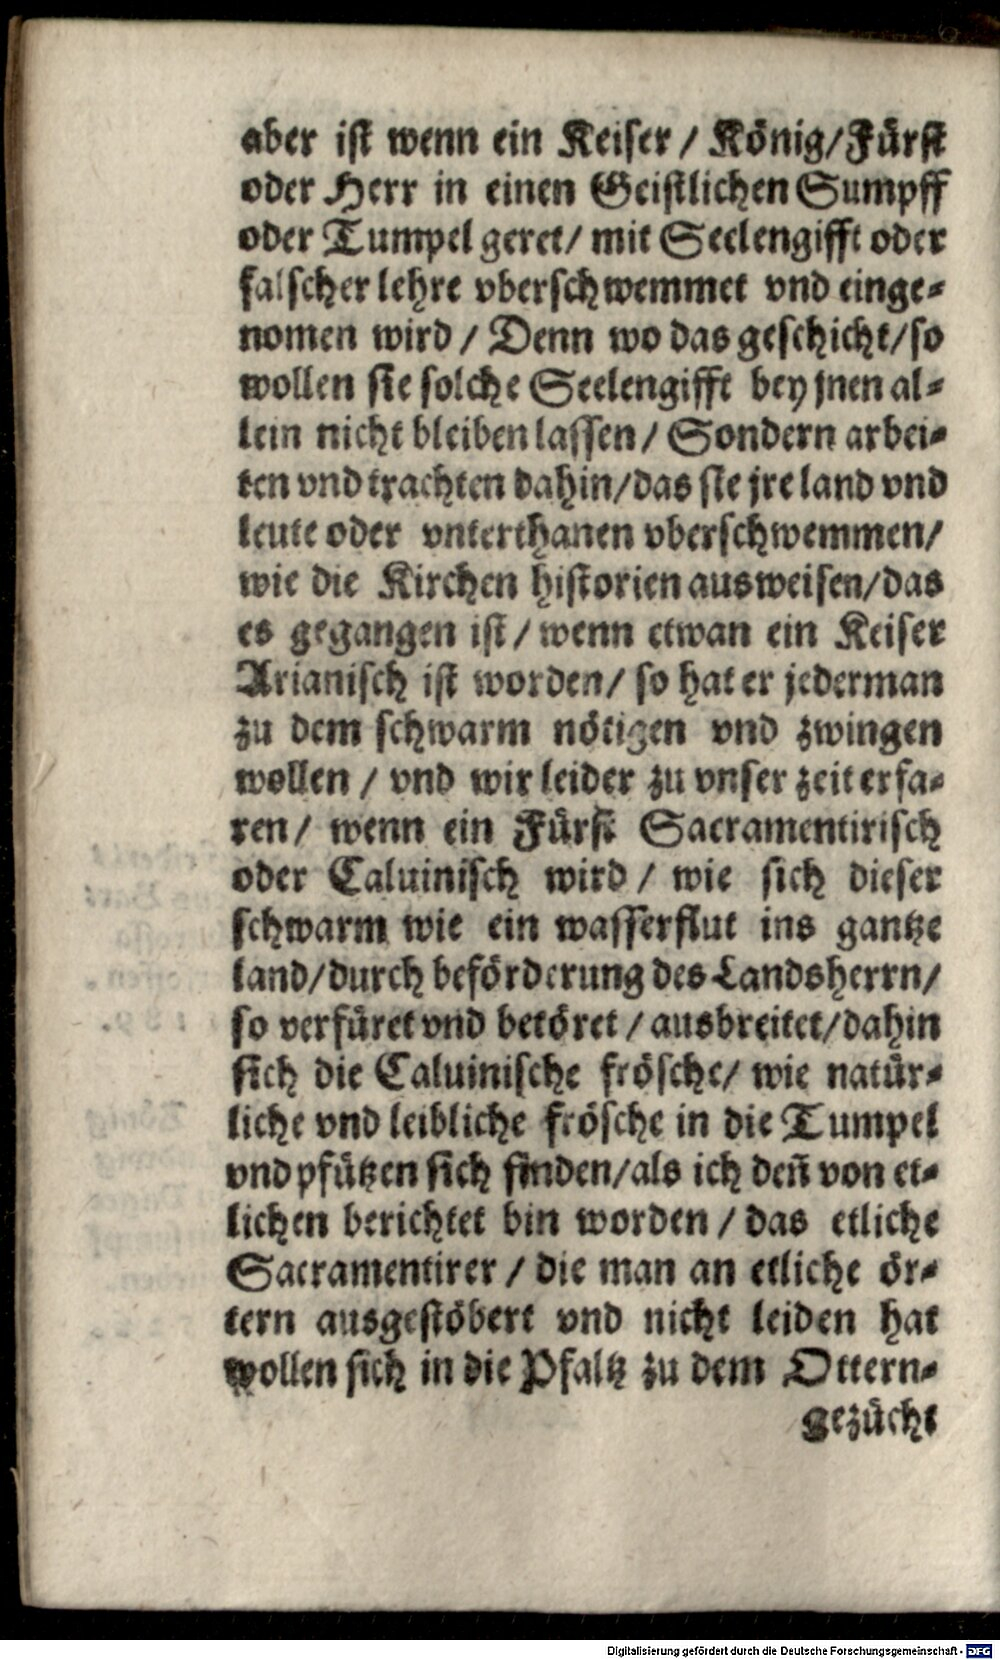 aber ist wenn ein Keiser / König/Fürst
oder Herr in einen Geistlichen Sumpff
oder Tumpel geret/ mit Seelengifft oder
falscher lehre vberschwemmet vnd einge⸗
nomen wird / Denn wo das geschicht/so
wollen sie solche Seelengifft bey jnen al⸗
lein nicht bleiben lassen/ Sondern arbei⸗
ten vnd trachten dahin/das sie jre land vnd
leute oder vnterthanen vberschwemmen/
wie die Kirchen historien ausweisen/das
es gegangen ist/ wenn etwan ein Keiser
Arianisch ist worden/ so hat er jederman
zu dem schwarm nötigen vnd zwingen
wollen / vnd wir leider zu vnser zeit erfa⸗
ren/ wenn ein Fürst Sacramentirisch
oder Caluinisch wird / wie sich dieser
schwarm wie ein wasserflut ins gantze
land/durch beförderung des Landsherrn/
so verfüret vnd betöret / ausbreitet/dahin
sich die Caluinische frösche/ wie natür⸗
liche vnd leibliche frösche in die Tumpel
vnd pfützen sich finden/als ich deñ von et⸗
lichen berichtet bin worden / das etliche
Sacramentirer / die man an etliche ör⸗
tern ausgestöbert vnd nicht leiden hat
wollen sich in die Pfaltz zu dem Ottern⸗
gezücht
Digitalisierung gefördert durch die Deutsche Forschungsgemeinschaft - DFG